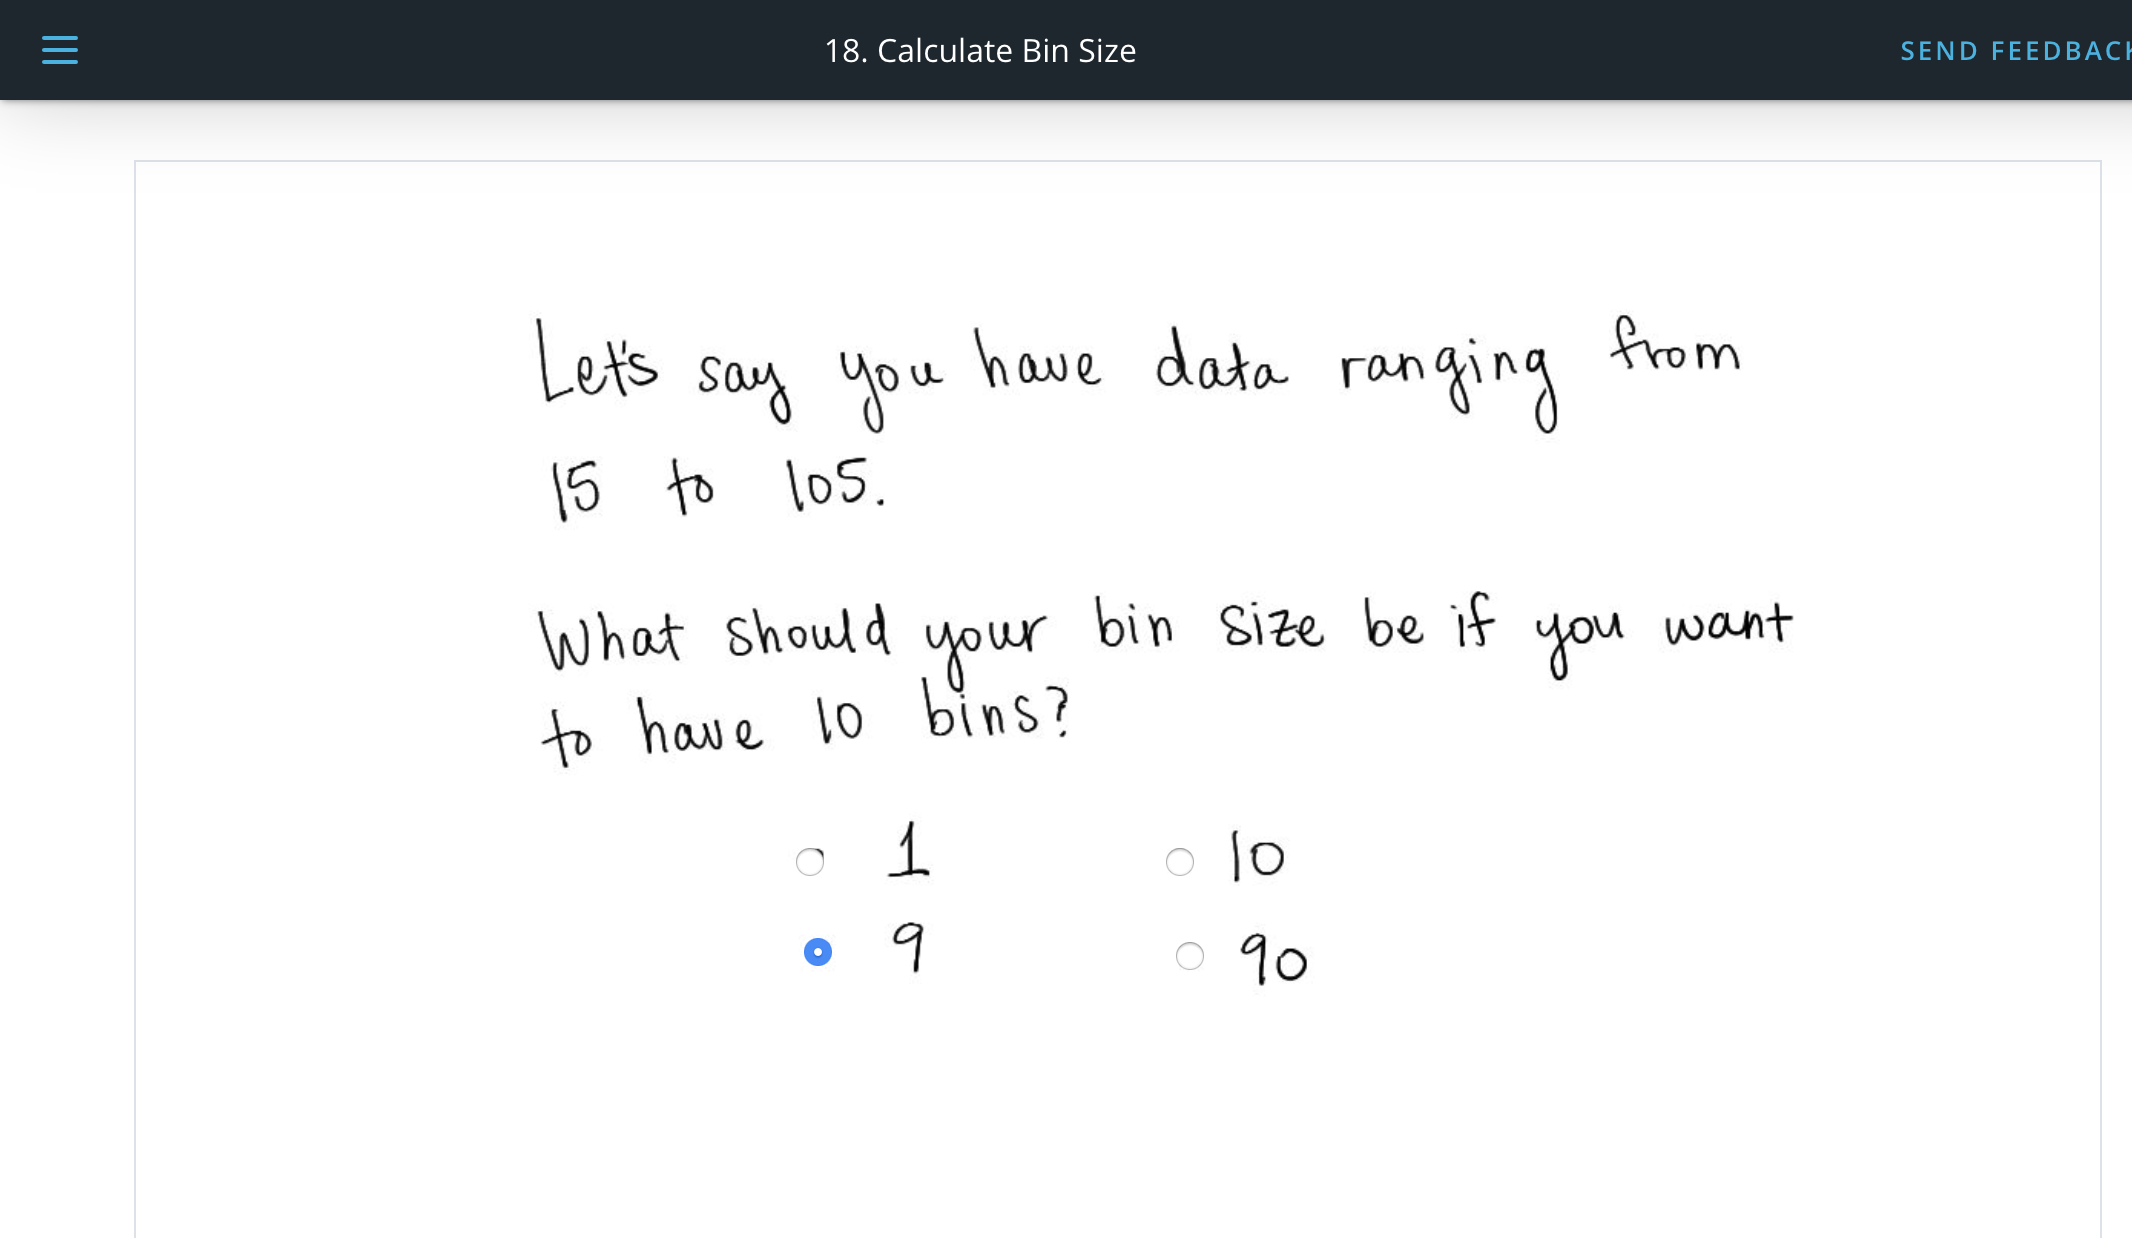 18. Calculate Bin Size
SEND FEEDBACK
Let's say you have data ranging from
15 to 105.
What should your bin size be if you want
to have 10 bins?
1 10
9 90